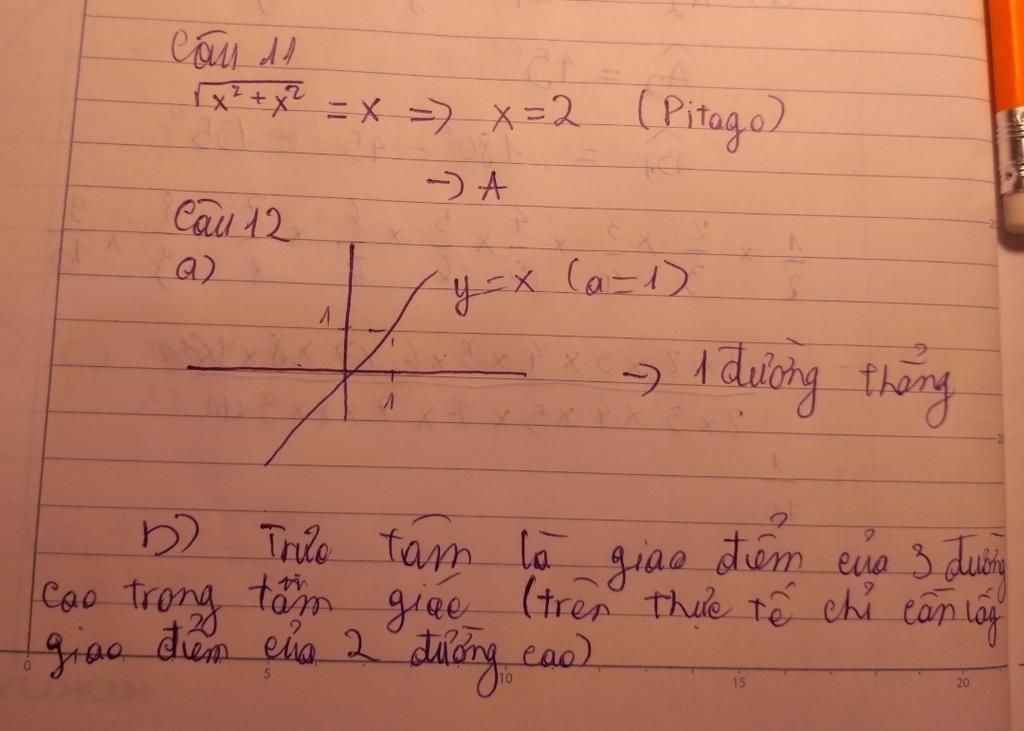 Câu 11
√x² + x² = x => x = 2 (Pitago)
→ A
Câu 12
a)
y = x (a = 1)
1
1
→ 1 đường thẳng
b) Trực tâm là giao điểm của 3 đường
cao trong tam giác (trên thực tế chỉ cần lấy
giao điểm của 2 đường cao)
0 5 10 15 20